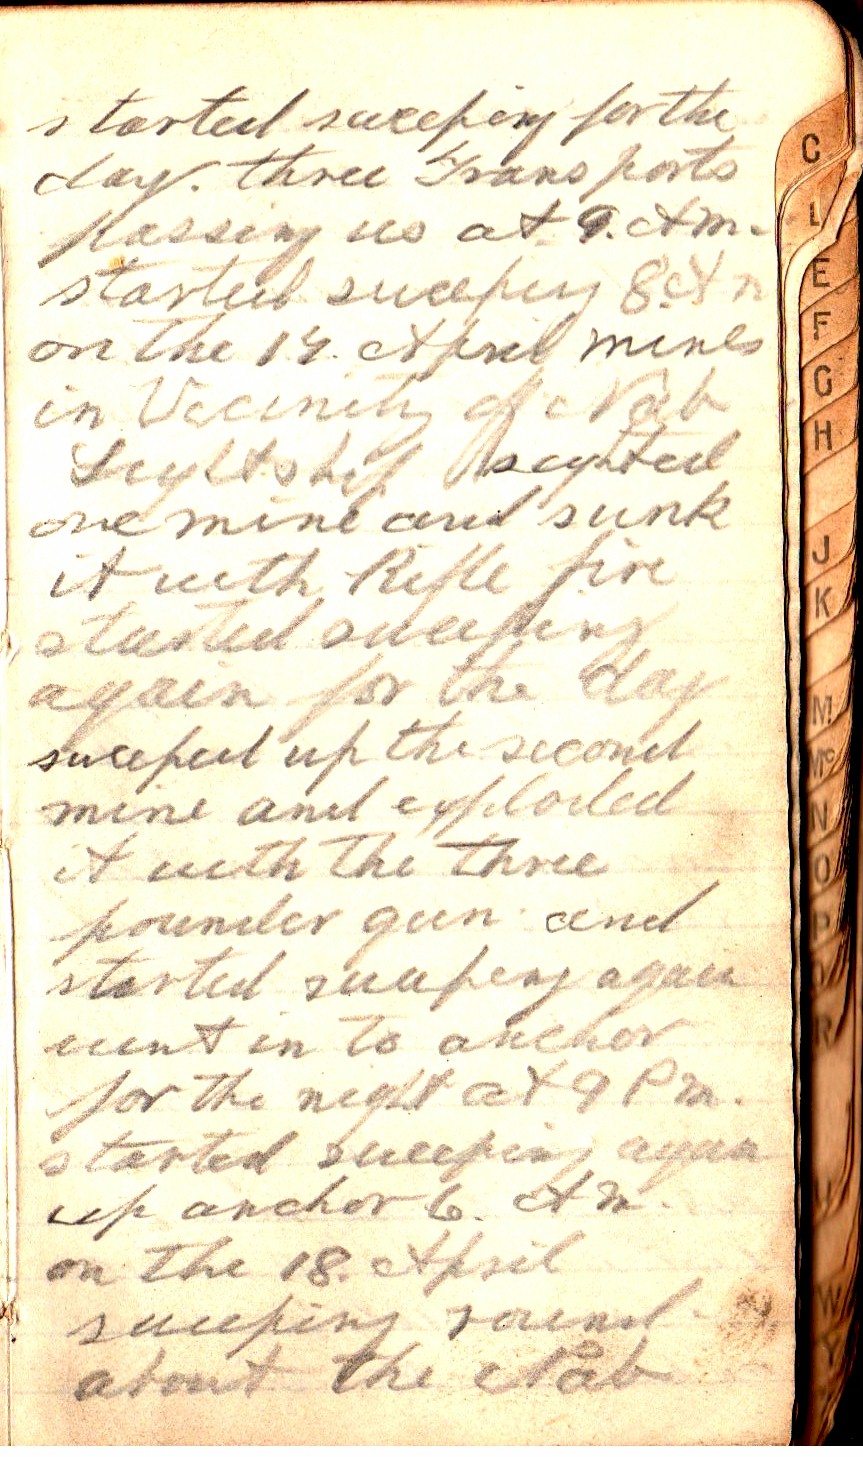 started sweeping for the
day. three Transports
passing us at 9. Am.
started sweeping 8. Am
on the 14. April mines
in Vicinity of Nab
Lightship sighted
one mine and sunk
it with Rifle fire
started sweeping
again for the day
sweeped up the second
mine and exploded
it with the three
pounder gun and
started sweeping again
went in to anchor
for the night at 9 Pm.
started sweeping again
up anchor 6. Am.
on the 18. April
sweeping round
about the Nab
C
L
E
F
G
H
J
K
M
Mc
N
O
P
R
W
Y